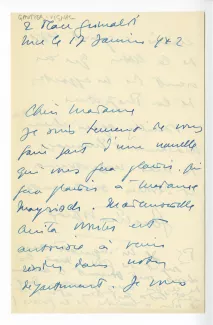 GAUTIER-VIGNAL
2 Place Grimaldi
Nice le 17 Janvier 1942
Chère Madame
Je suis heureux de vous
faire part d'une nouvelle
qui vous fera plaisir. Qui
fera plaisir à Madame
Mayrisch. Mademoiselle
Anita est
autorisée à venir
résider dans notre
département. Je vous